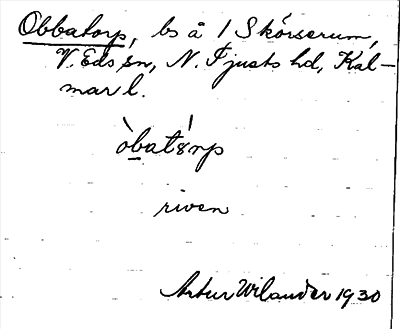 Obbatorp, bs å 1 Skörserum,
V. Eds sn, N. Tjusts hd, Kal-
mar l.
òbatórp
riven
Artur Wilander 1930